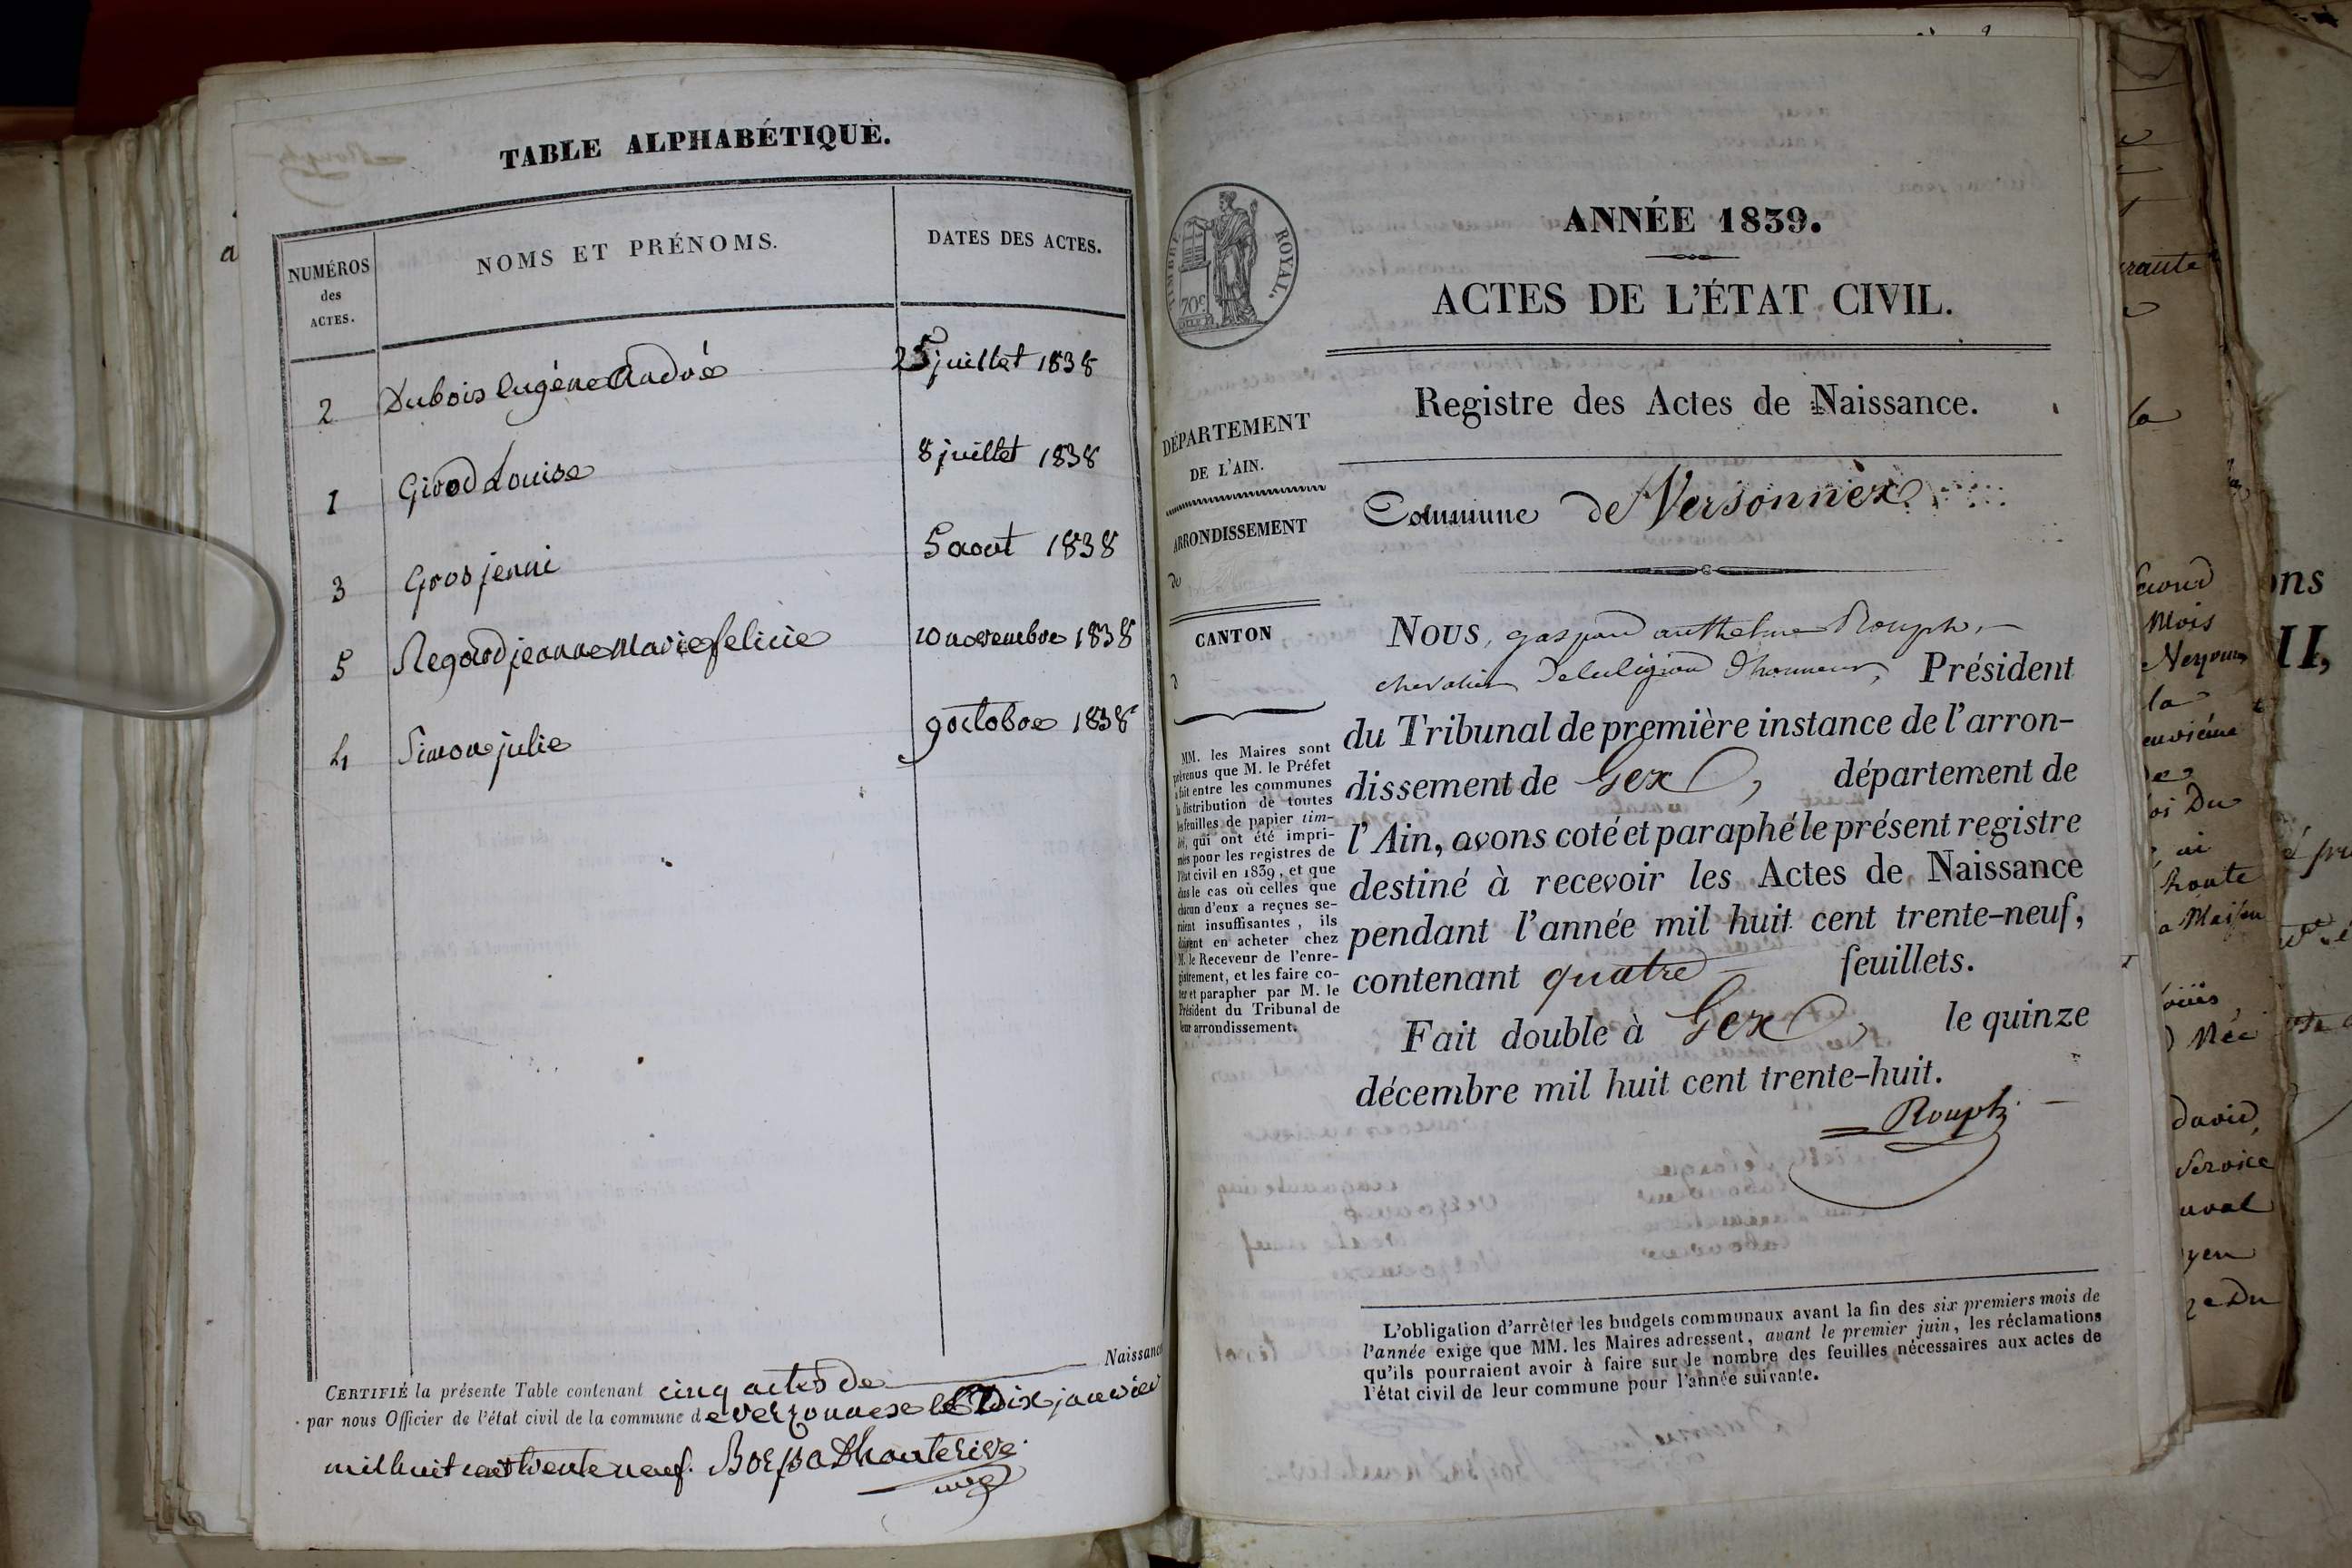 TABLE ALPHABÉTIQUE.
NUMÉROS
des
ACTES.
NOMS ET PRÉNOMS.
DATES DES ACTES.
2 Dubois Eugène André 25 juillet 1838
1 Girod Louise 8 juillet 1838
3 Gros jenni 5 aout 1838
5 Regard jeanne Marie felicie 10 novembre 1838
4 Simon julie 9 octobre 1838
CERTIFIÉ la présente Table contenant cinq actes de Naissance
par nous Officier de l'état civil de la commune de Verzonnex le Dix janvier
mil huit cent trente neuf. Borssa Dhauterive
TIMBRE ROYAL.
70c
ANNÉE 1839.
ACTES DE L'ÉTAT CIVIL.
Registre des Actes de Naissance.
DÉPARTEMENT
DE L'AIN.
ARRONDISSEMENT
de
CANTON
d
Commune de Versonnex
NOUS, gaspard anthelme Rouph,
chevalier de la légion d'honneur, Président
du Tribunal de première instance de l'arron-
dissement de Gex, département de
l'Ain, avons coté et paraphé le présent registre
destiné à recevoir les Actes de Naissance
pendant l'année mil huit cent trente-neuf,
contenant quatre feuillets.
Fait double à Gex, le quinze
décembre mil huit cent trente-huit.
Rouph
MM. les Maires sont
prévenus que M. le Préfet
a fait entre les communes
la distribution de toutes
les feuilles de papier tim-
bré, qui ont été impri-
mées pour les registres de
l'état civil en 1839, et que
dans le cas où celles que
chacun d'eux a reçues se-
raient insuffisantes, ils
doivent en acheter chez
M. le Receveur de l'enre-
gistrement, et les faire co-
ter et parapher par M. le
Président du Tribunal de
leur arrondissement.
L'obligation d'arrêter les budgets communaux avant la fin des six premiers mois de
l'année exige que MM. les Maires adressent, avant le premier juin, les réclamations
qu'ils pourraient avoir à faire sur le nombre des feuilles nécessaires aux actes de
l'état civil de leur commune pour l'année suivante.
la
Mois
la
david,
Service